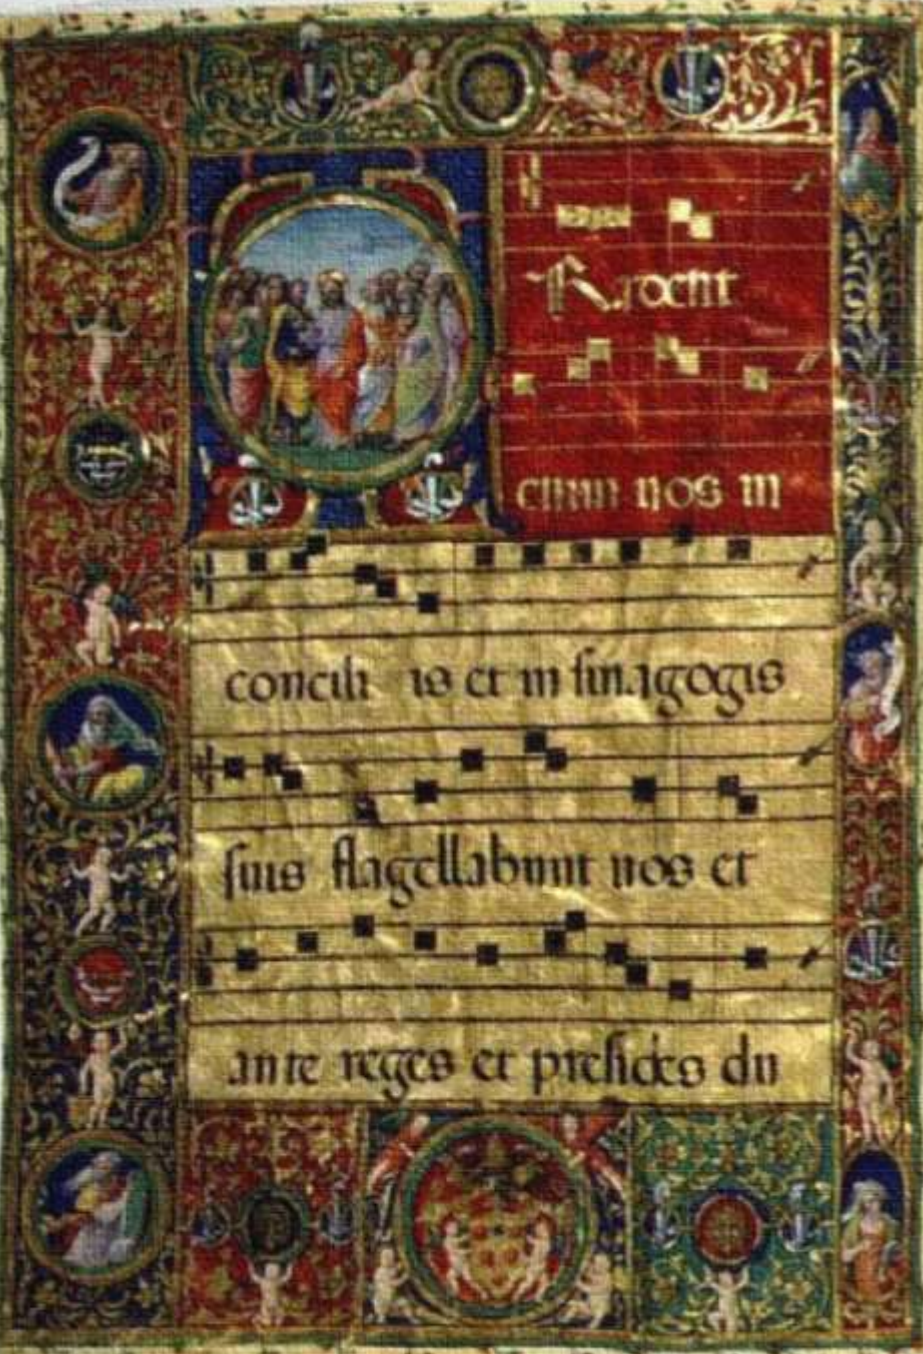 Radent
enim uos in
concili is et in sinagogis
suis flagellabunt uos et
ante reges et presides du